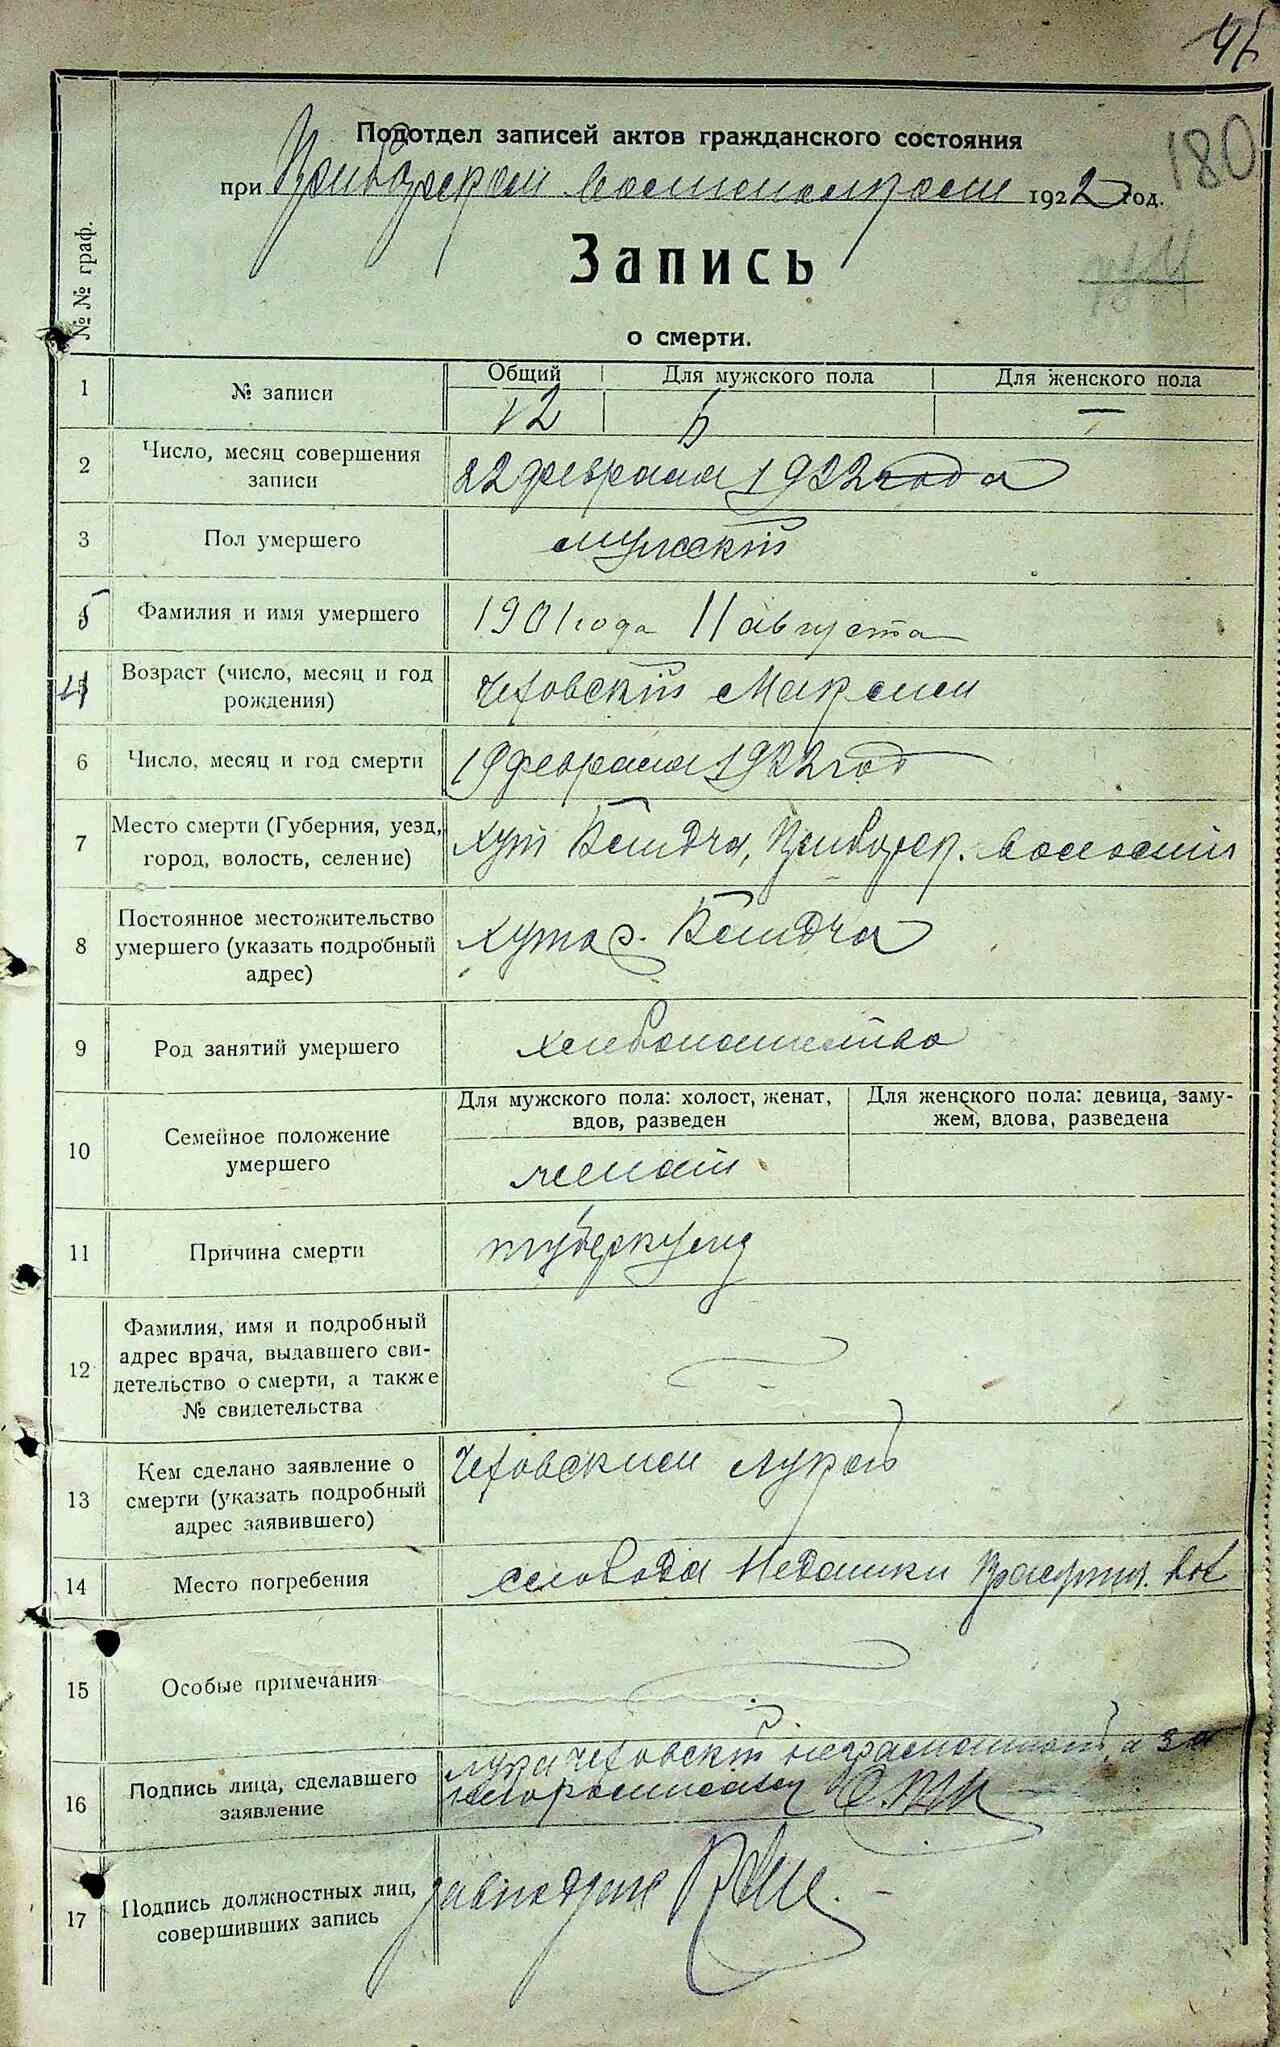 180
Подотдел записей актов гражданского состояния
при 1922 год.
№№ граф.
Запись
о смерти.
1 № записи Общий Для мужского пола Для женского пола
12 —
2 Число, месяц совершения записи 22 февраля 1922 года
3 Пол умершего мужской
5 Фамилия и имя умершего 1901 года 11 августа
4 Возраст (число, месяц и год рождения) Чеховскій Максим
6 Число, месяц и год смерти 19 февраля 1922 год
7 Место смерти (Губерния, уезд, город, волость, селение) хут
8 Постоянное местожительство умершего (указать подробный адрес) хутор.
9 Род занятий умершего хлебопашество
10 Семейное положение умершего Для мужского пола: холост, женат, вдов, разведен Для женского пола: девица, замужем, вдова, разведена
женат
11 Причина смерти туберкулез
12 Фамилия, имя и подробный адрес врача, выдавшего свидетельство о смерти, а также № свидетельства
13 Кем сделано заявление о смерти (указать подробный адрес заявившего) Чеховским Лукой
14 Место погребения слобода Недашки
15 Особые примечания
16 Подпись лица, сделавшего заявление Лука Чеховскій неграмотный, а за него росписался
17 Подпись должностных лиц, совершивших запись